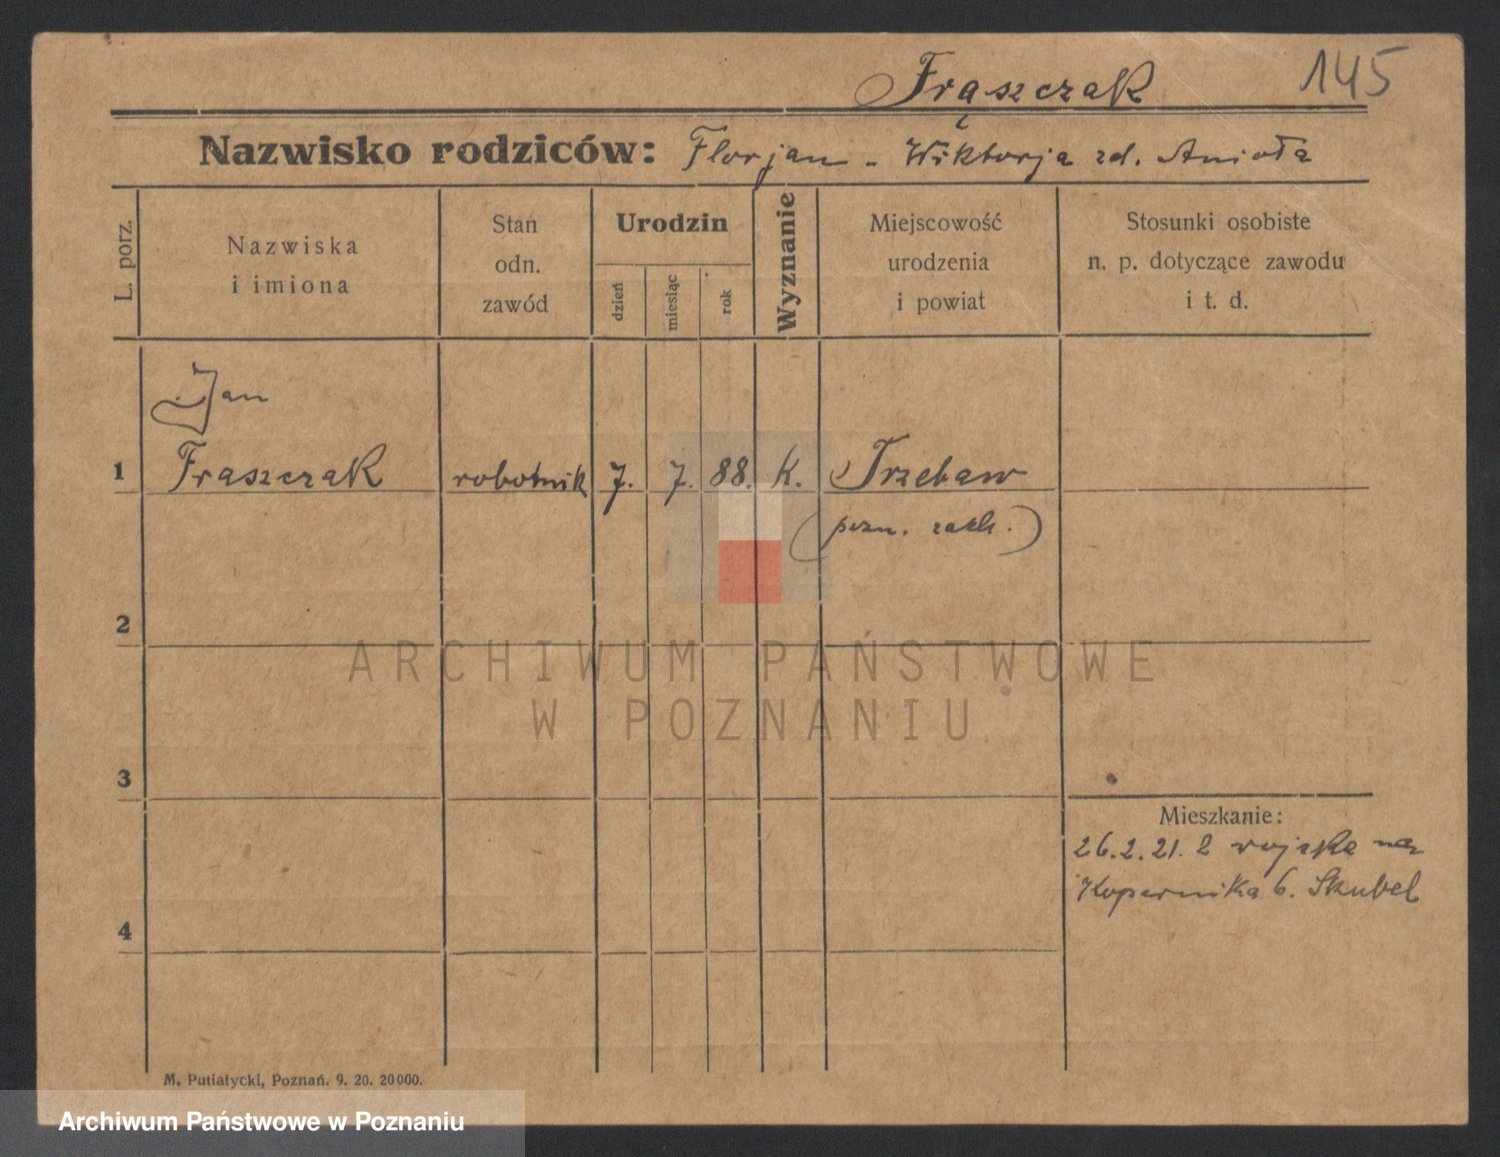 Frąszczak 145
Nazwisko rodziców: Florjan - Wiktorja zd. Anioła
L. porz.
Nazwiska
i imiona
Stan
odn.
zawód
Urodzin
dzień
miesiąc
rok
Wyznanie
Miejscowość
urodzenia
i powiat
Stosunki osobiste
n. p. dotyczące zawodu
i t. d.
Jan
1 Fraszczak robotnik 7. 7. 88. K. Trzebaw
(pozn. zach.)
2
ARCHIWUM PAŃSTWOWE
W POZNANIU
3
Mieszkanie:
26.2.21. z wojska na
Kopernika 6. Skubel
4
M. Putiatycki, Poznań. 9. 20. 20000.
Archiwum Państwowe w Poznaniu